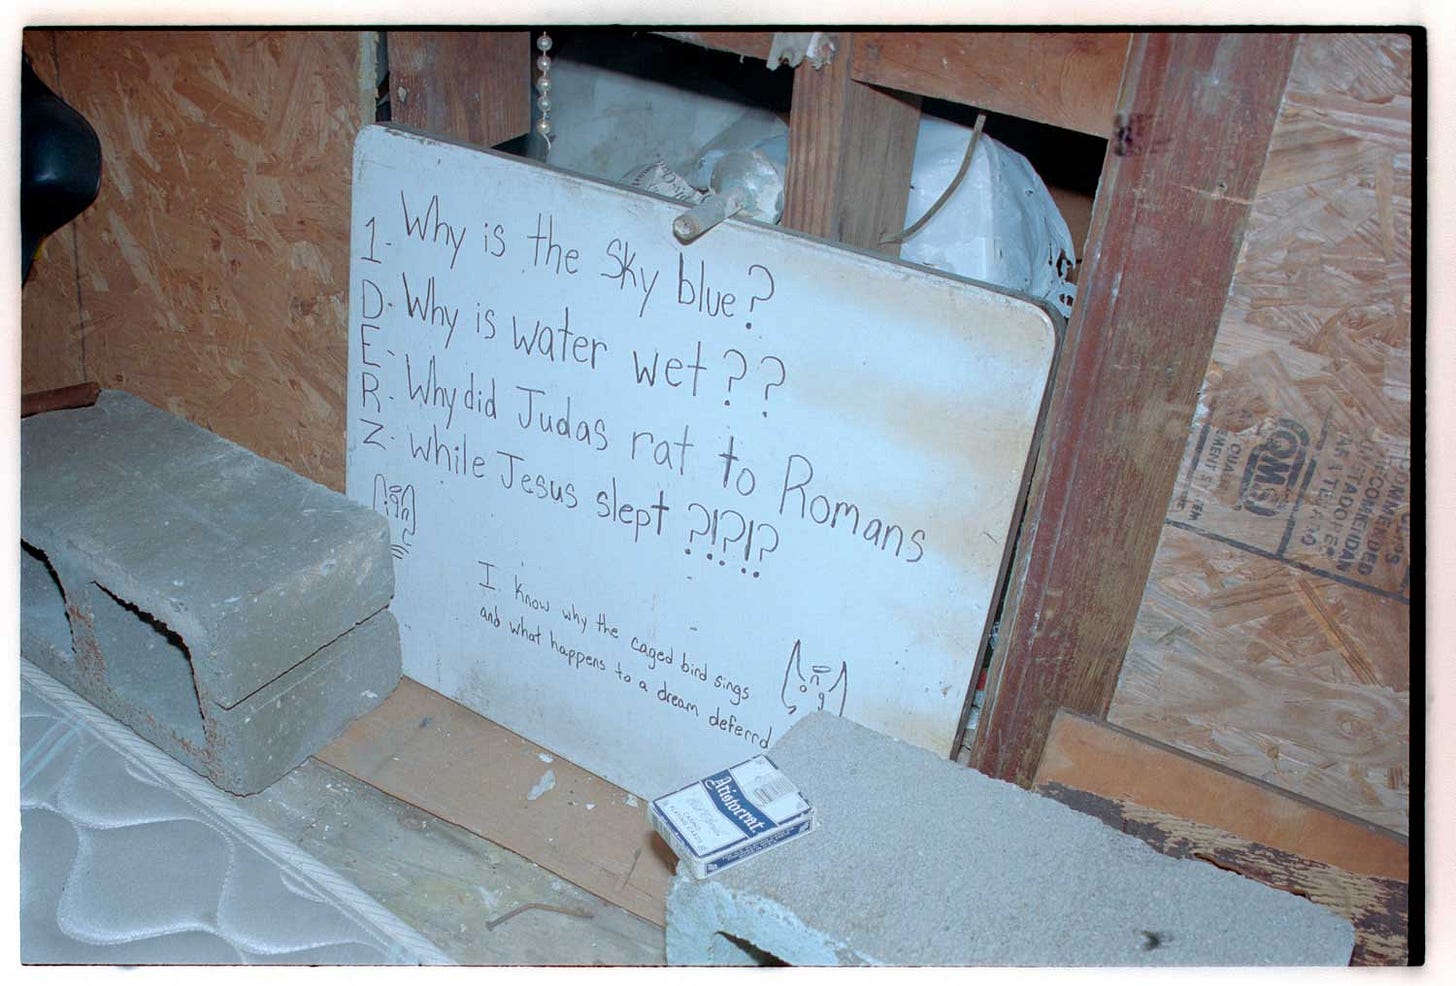 1- Why is the Sky blue?
D- Why is water wet??
E-
R- Why did Judas rat to Romans
Z- while Jesus slept ?!?!?
I. Know why the caged bird sings
and what happens to a dream deferrd
Aristocrat
CASINO
PLAYING CARDS